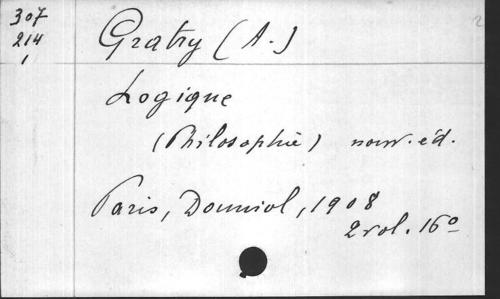 307
214
1
Gratry (A.)
Logique
(Philosophie) nouv. éd.
Paris, Douniol, 1908
2 vol. 16º
2